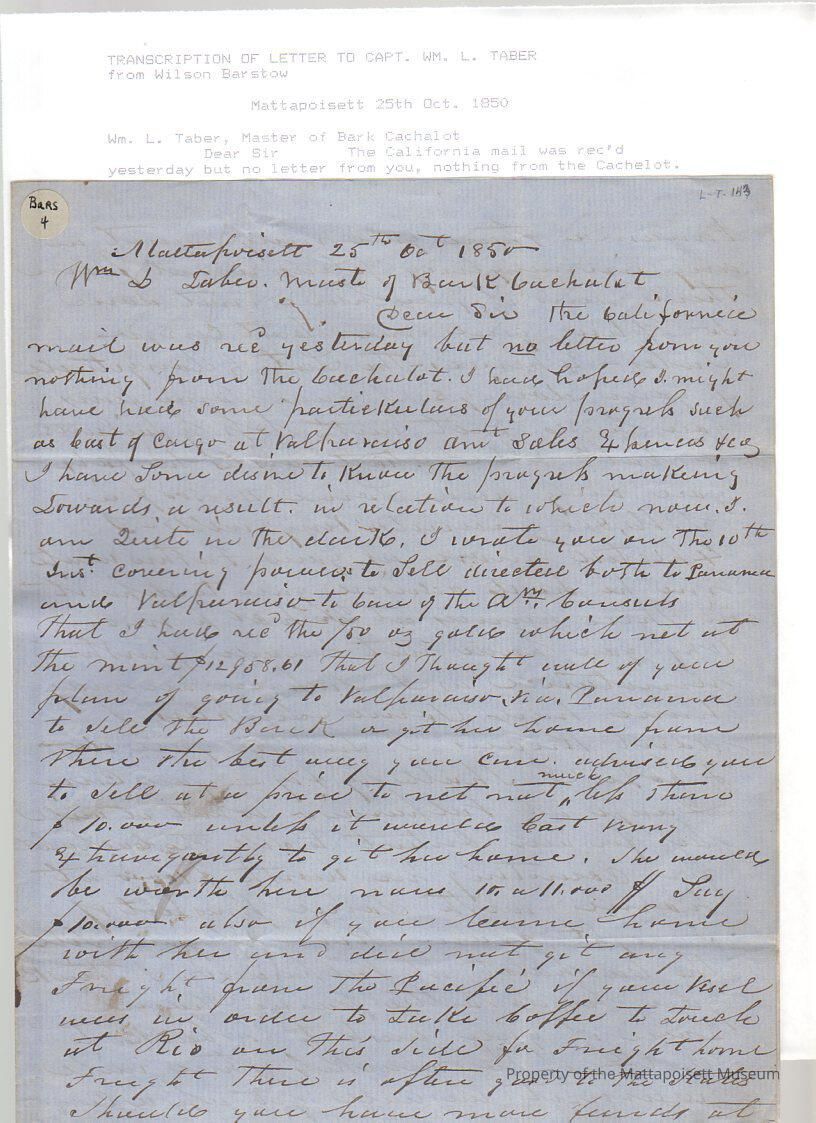 TRANSCRIPTION OF LETTER TO CAPT. WM. L. TABER
from Wilson Barstow
Mattapoisett 25th Oct. 1850
Wm. L. Taber, Master of Bark Cachalot
Dear Sir The California mail was rec'd
yesterday but no letter from you, nothing from the Cachelot.
BARS
4
L-T. 143
Mattapoisett 25th Oct 1850
Wm L Taber. Mast of Bark Cachalot
Dear Sir the California
mail was recd yesterday but no letter from you
nothing from the Cachalot. I had hoped I might
have had some partickulars of your progress such
as Cost of Cargo at Valparaiso amt Sales Expences &ca
I have Some desire to Know the progress makeing
Towards a result. in relation to which now. I.
am Quite in the dark, I wrote you on The 10th
Inst covering powers to Sell directed both to Panama
and Valparaiso to Care of the Am. Consuls
that I had recd the 750 oz gold which net at
the mint $12958.61 That I Thought well of your
plan of going to Valparaiso via. Panama
to Sell the Bark or git her home from
there the best way you can. advised you
to Sell at a price to net not much less than
$10.000 unless it would Cost very
Extravigantly to git her home. She would
be worth here now 10 a 11.000 $ Say
$10.000 also if you came home
with her and did not git any
Freight from The Pacific if your Vessel
was in order to Take Coffee to Touch
at Rio on This Side for Freight home
Freight There is often good to the States
Should you have more funds at
Property of the Mattapoisett Museum